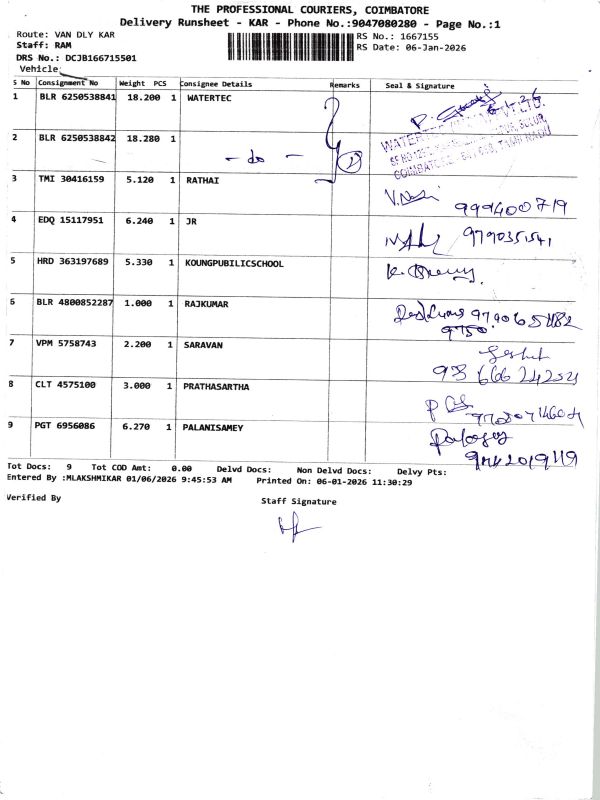 THE PROFESSIONAL COURIERS, COIMBATORE
Delivery Runsheet - KAR - Phone No.:9047080280 - Page No.:1
Route: VAN DLY KAR
RS No.: 1667155
Staff: RAM
RS Date: 06-Jan-2026
DRS No.: DCJB166715501
Vehicle:
S No Consignment No Weight PCS Consignee Details Remarks Seal & Signature
1 BLR 6250538841 18.200 1 WATERTEC
2 BLR 6250538842 18.280 1 - do - 2
3 TMI 30416159 5.120 1 RATHAI 9994000719
4 EDQ 15117951 6.240 1 JR
5 HRD 363197689 5.330 1 KOUNGPUBILICSCHOOL
6 BLR 4800852287 1.000 1 RAJKUMAR
9750
7 VPM 5758743 2.200 1 SARAVAN
8 CLT 4575100 3.000 1 PRATHASARTHA
9 PGT 6956086 6.270 1 PALANISAMEY
Tot Docs: 9 Tot COD Amt: 0.00 Delvd Docs: Non Delvd Docs: Delvy Pts:
Entered By :MLAKSHMIKAR 01/06/2026 9:45:53 AM Printed On: 06-01-2026 11:30:29
Verified By Staff Signature